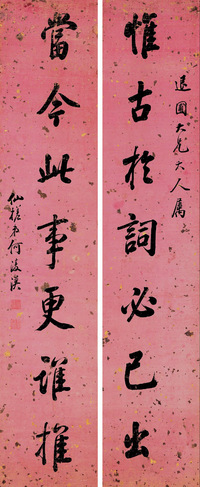 大兄大人属
惟古於詞必己出
當今此事更誰推
仙槎弟何淩漢